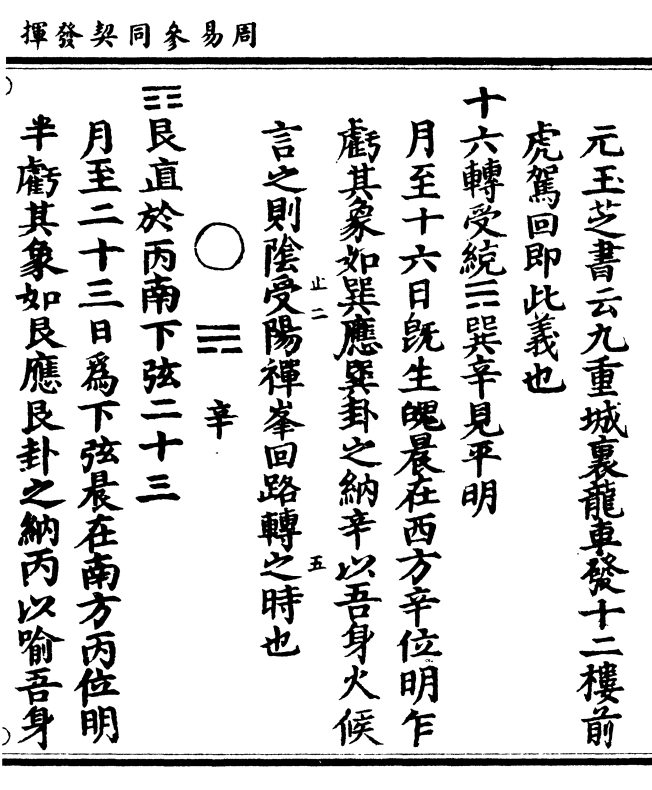 周易參同契發揮
元玉芝書云九重城裏龍車發十二樓前
虎駕回即此義也
十六轉受統☴巽辛見平明
月至十六日旣生魄晨在西方辛位明乍
虧其象如巽應巽卦之納辛以吾身火候
止二
五
言之則陰受陽禪峯回路轉之時也
☴
辛
☶艮直於丙南下弦二十三
月至二十三日爲下弦晨在南方丙位明
半虧其象如艮應艮卦之納丙以喻吾身